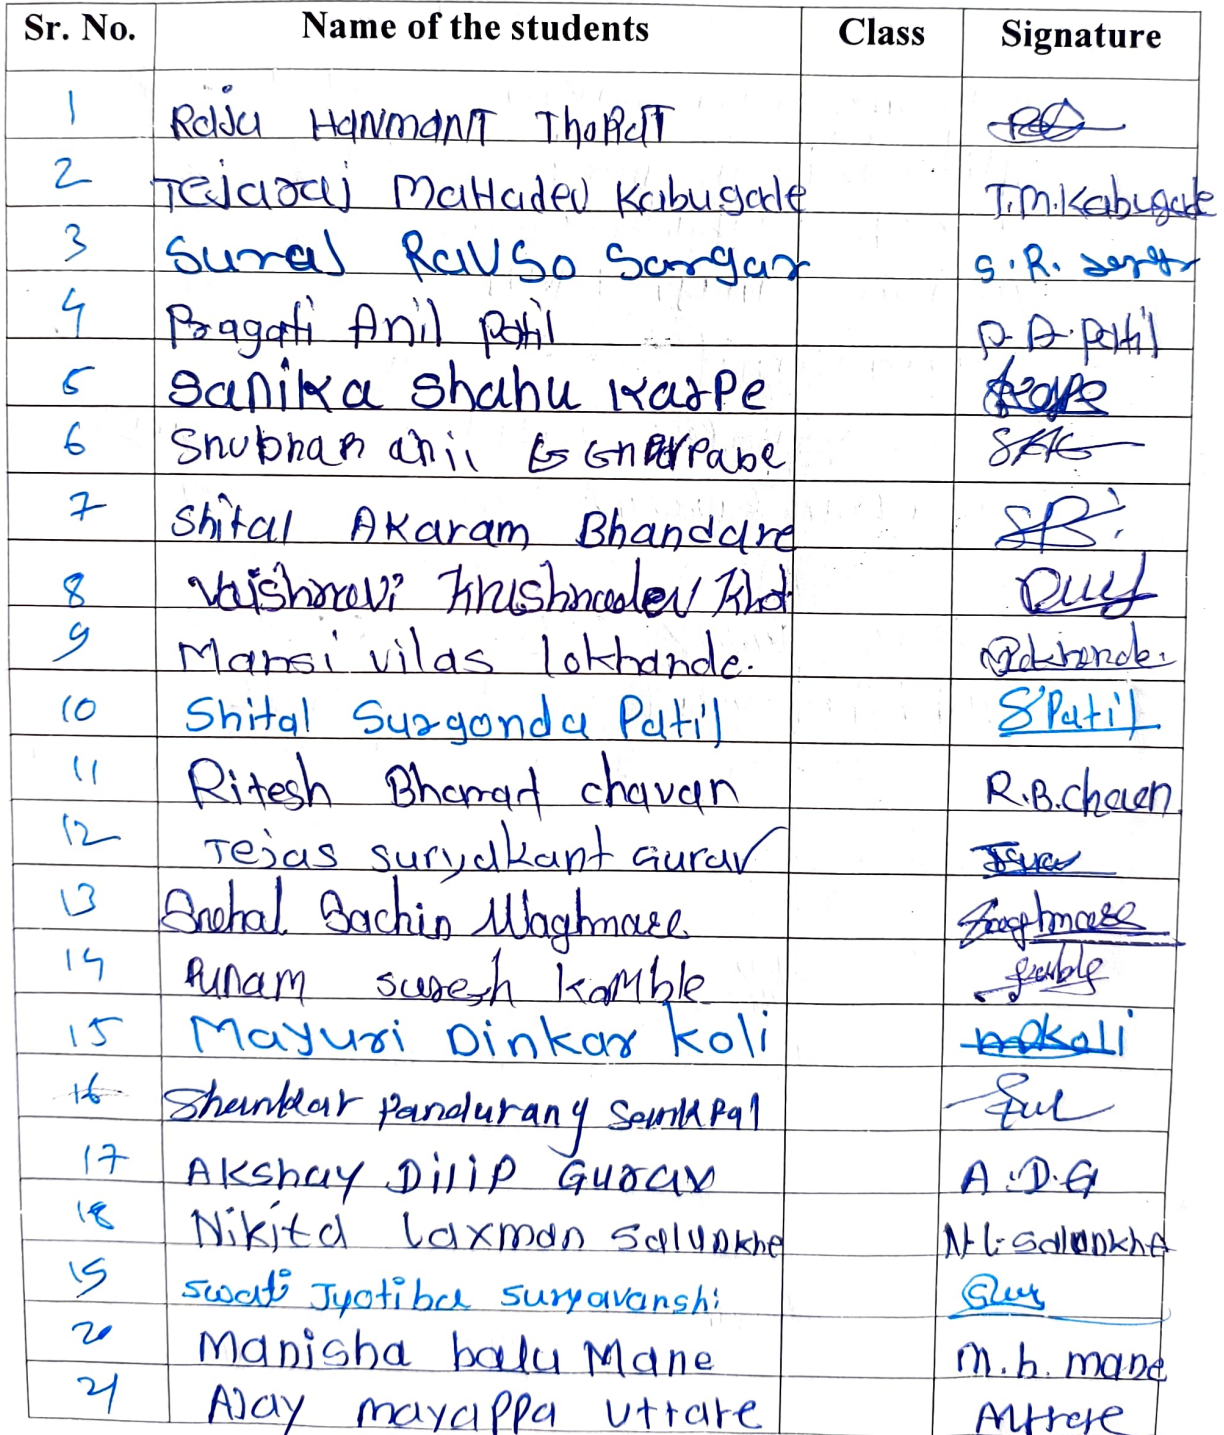 Sr. No. Name of the students Class Signature
1 Raju Hanmant Thorat
2 Tejaraj Mahadev Kabugade T.M.Kabugade
3 Suraj Ravso Sargar S.R.
4 Pragati Anil Patil P.A.Patil
5 Sanika Shahu Karpe
6 Shubham anil
7 Shital Akaram Bhandare SB
8 Vaishnavi Krushnadev Khot
9 Mansi vilas lokhande. Lokhande.
10 Shital Surgonda Patil S Patil
11 Ritesh Bharat chavan R.B.chaen
12 Tejas suryakant Gurav
13 Snehal Sachin Waghmare Waghmare
14 Punam suresh kamble
15 Mayuri Dinkar koli koli
16 Shankar Pandurang
17 Akshay Dilip Gurav A.D.G
18 Nikita laxman Salunkhe N.L.Salunkhe
19 Swati Jyotiba Suryavanshi
20 Manisha balu Mane m.b.mane
21 Ajay mayappa Uttare AUttare